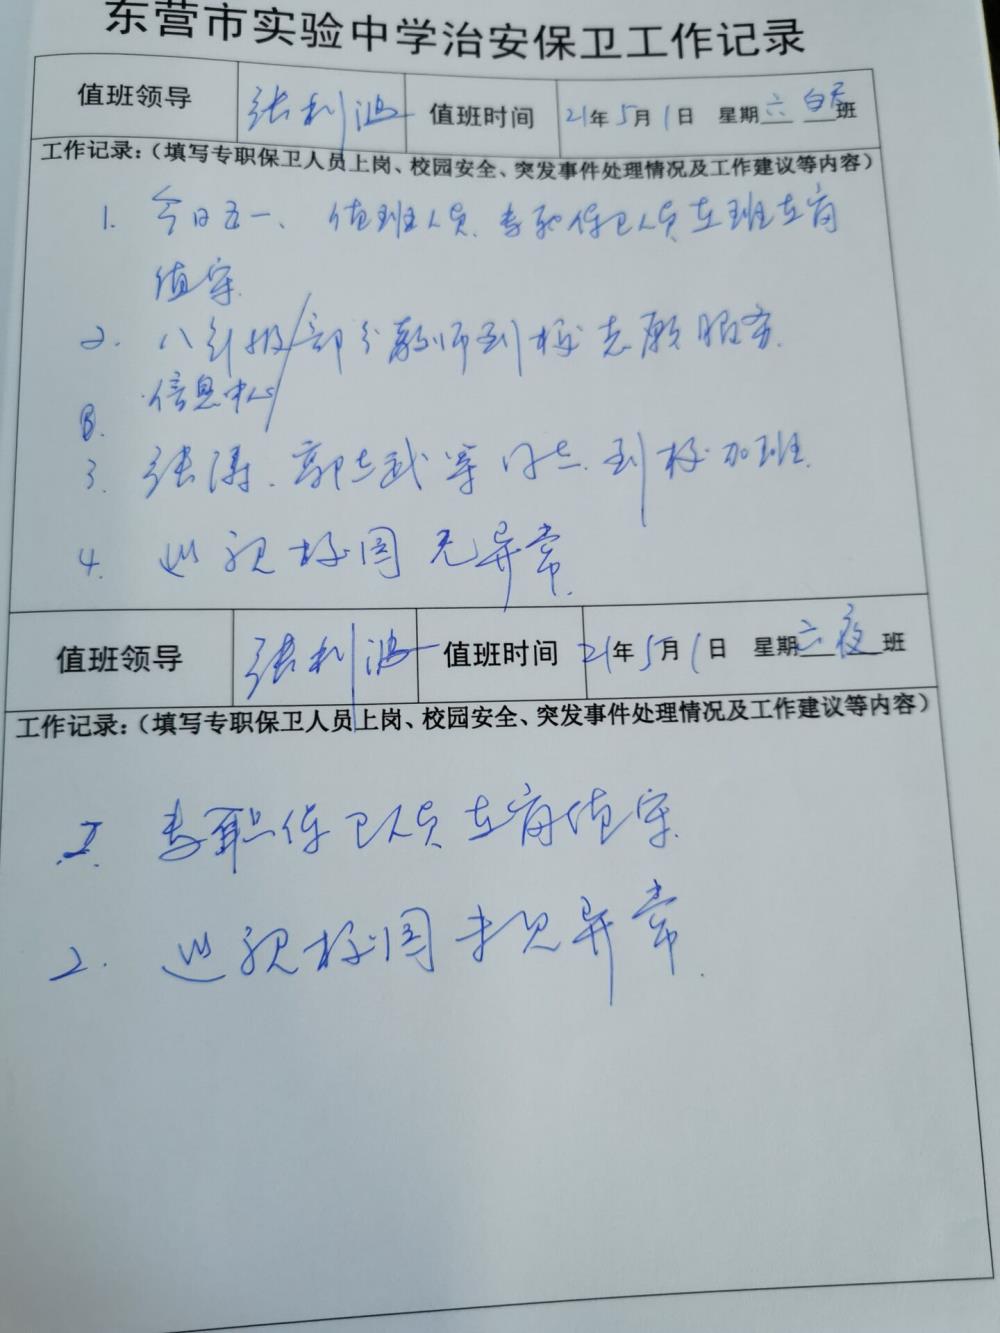 东营市实验中学治安保卫工作记录
值班领导 张利鸿 值班时间 21年5月1日 星期六 白天班
工作记录:(填写专职保卫人员上岗、校园安全、突发事件处理情况及工作建议等内容)
1. 今日五一、值班人员、专职保卫人员在班在岗
值守.
2. 八年级/部分教师到校志愿服务.
信息中心
3. 张涛、郭志武等同志到校加班.
4. 巡视校园无异常.
值班领导 张利鸿 值班时间 21年5月1日 星期六夜班
工作记录:(填写专职保卫人员上岗、校园安全、突发事件处理情况及工作建议等内容)
1. 专职保卫人员在岗值守.
2. 巡视校园未见异常.